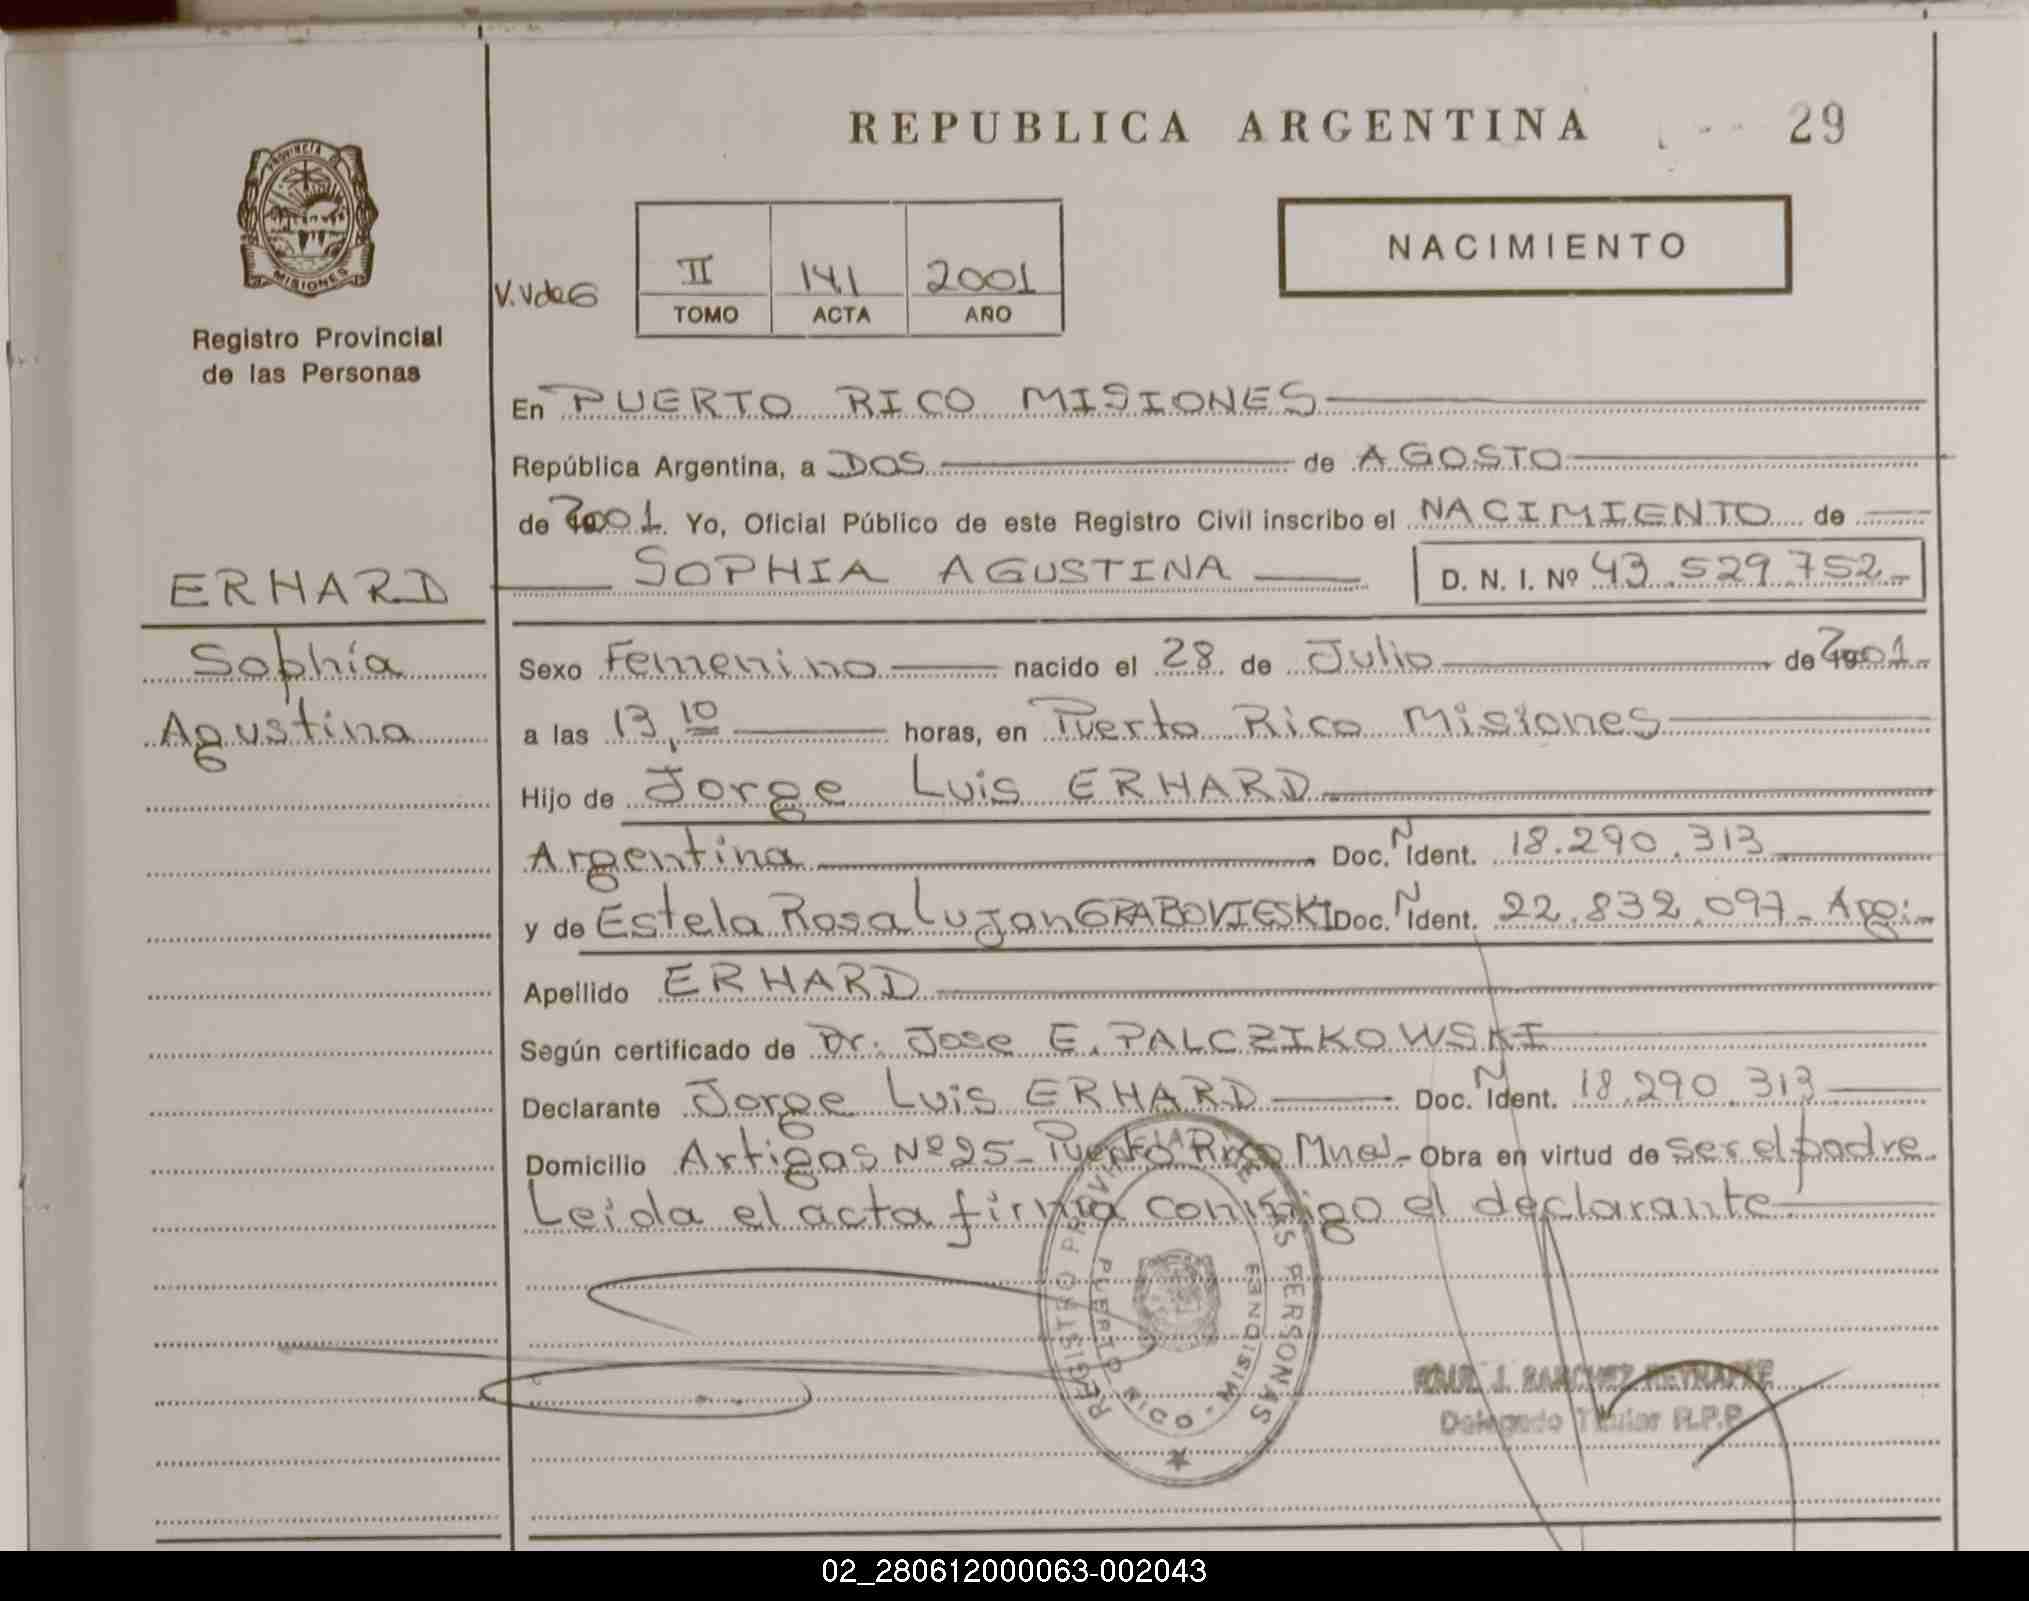 REPUBLICA ARGENTINA
29
PROVINCIA DE
MISIONES
Registro Provincial
de las Personas
NACIMIENTO
II 141 2001
TOMO ACTA AÑO
En PUERTO RICO MISIONES
República Argentina, a DOS de AGOSTO
de 2001. Yo, Oficial Público de este Registro Civil inscribo el NACIMIENTO de
SOPHIA AGUSTINA D. N. I. Nº 43.529.752
ERHARD
Sophía
Agustina
Sexo Femenino nacido el 28 de Julio de 2001
a las 13,10 horas, en Puerto Rico Misiones
Hijo de Jorge Luis ERHARD
Argentina Doc. N Ident. 18.290.313
y de Estela Rosa Lujan GRABOVIESKI Doc. N Ident. 22.832.097 - Arg.
Apellido ERHARD
Según certificado de Dr. Jose E. PALCZIKOWSKI
Declarante Jorge Luis ERHARD Doc. N Ident. 18.290.313
Domicilio Artigas Nº 25 - Puerto Rico Mnes - Obra en virtud de ser el padre
Leida el acta firma conmigo el declarante
REGISTRO PROVINCIAL DE LAS PERSONAS
PUERTO RICO - MISIONES
J. SANCHEZ
Delegado Titular R.P.P.
02_280612000063-002043